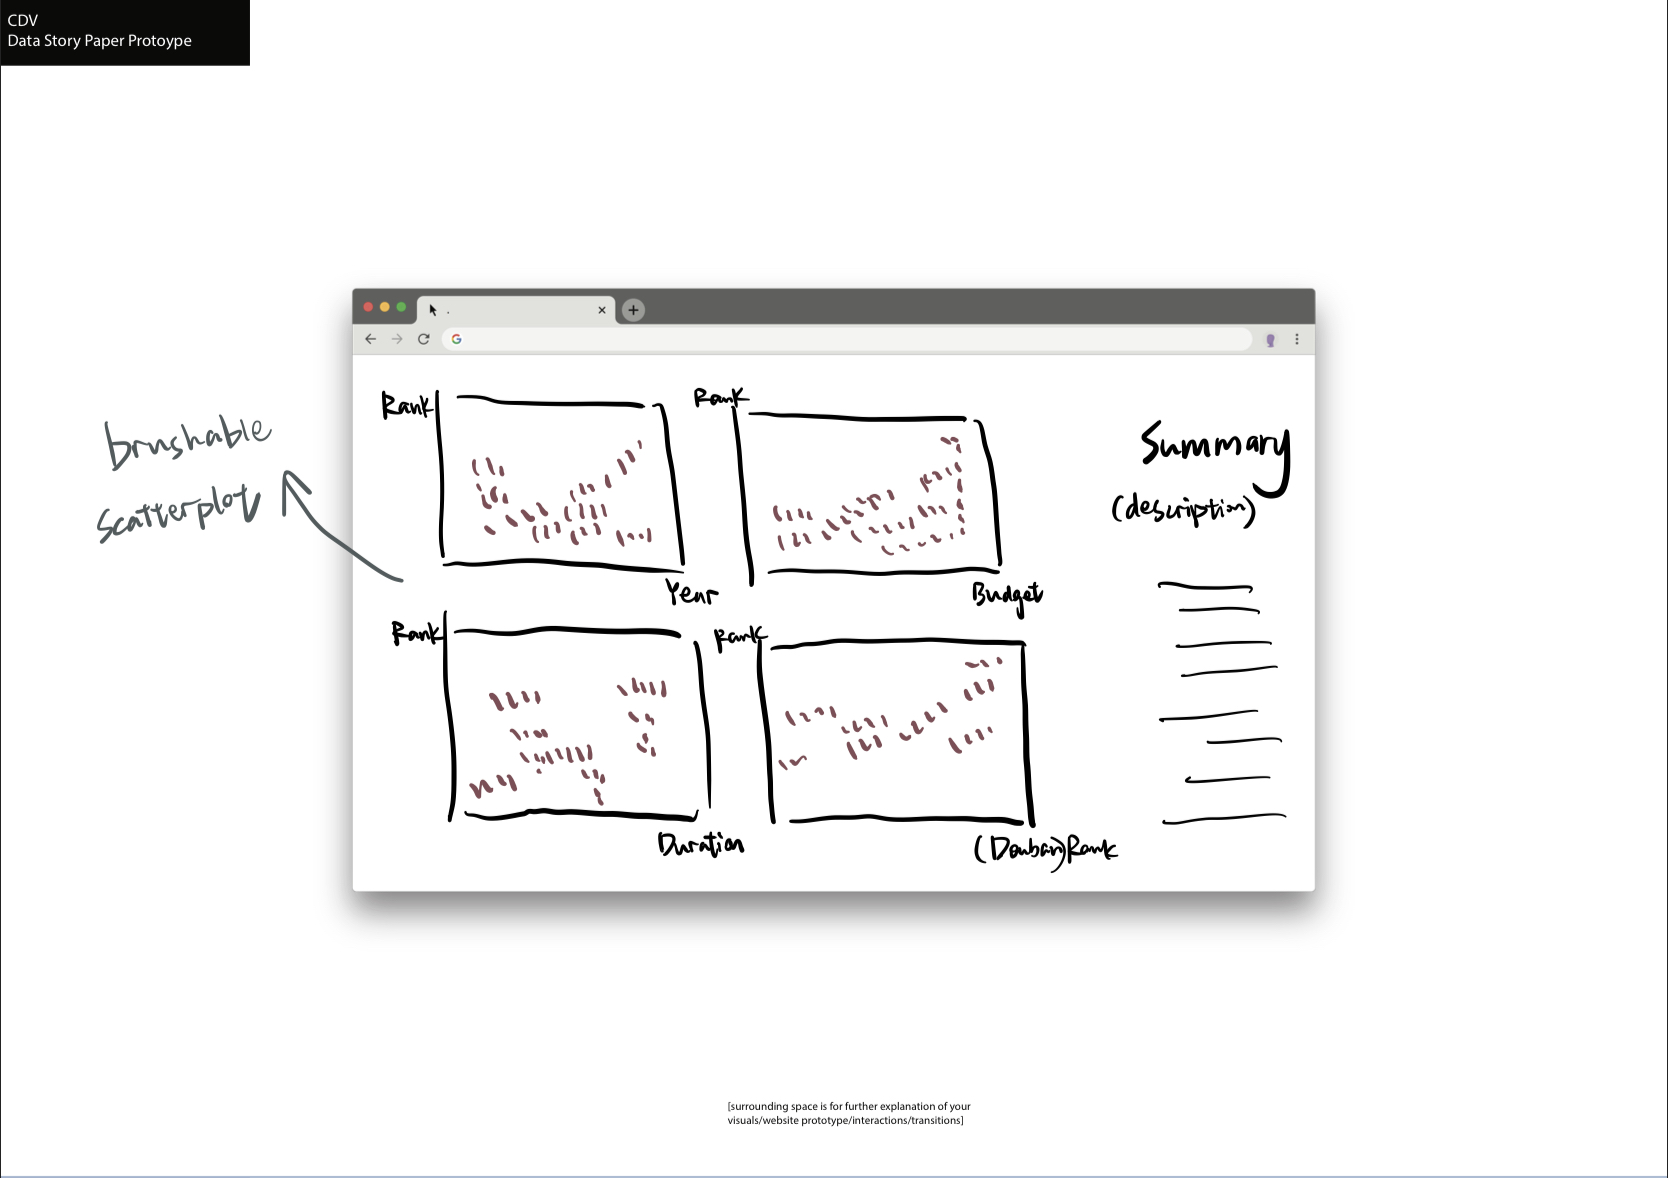 CDV
Data Story Paper Protoype
brushable
scatterplot
Rank
Year
Rank
Budget
Rank
Duration
Rank
(Douban)Rank
Summary
(description)
[surrounding space is for further explanation of your
visuals/website prototype/interactions/transitions]